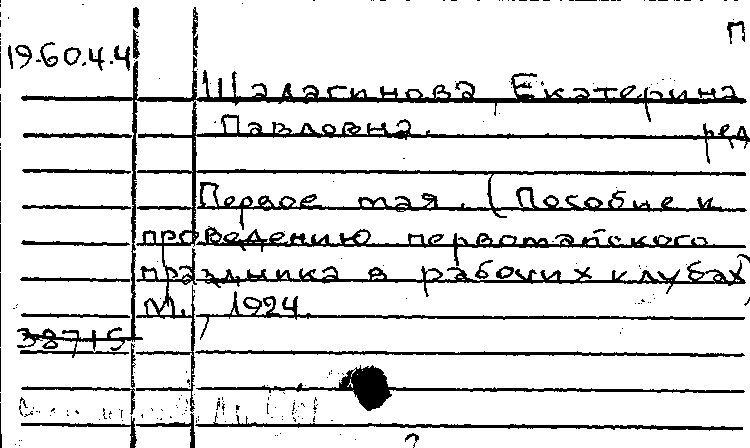 П
19.60.4.4
Шалагинова, Екатерина
Павловна. ред
Первое мая. (Пособие к
проведению первомайского
праздника в рабочих клубах)
М., 1924.
38715